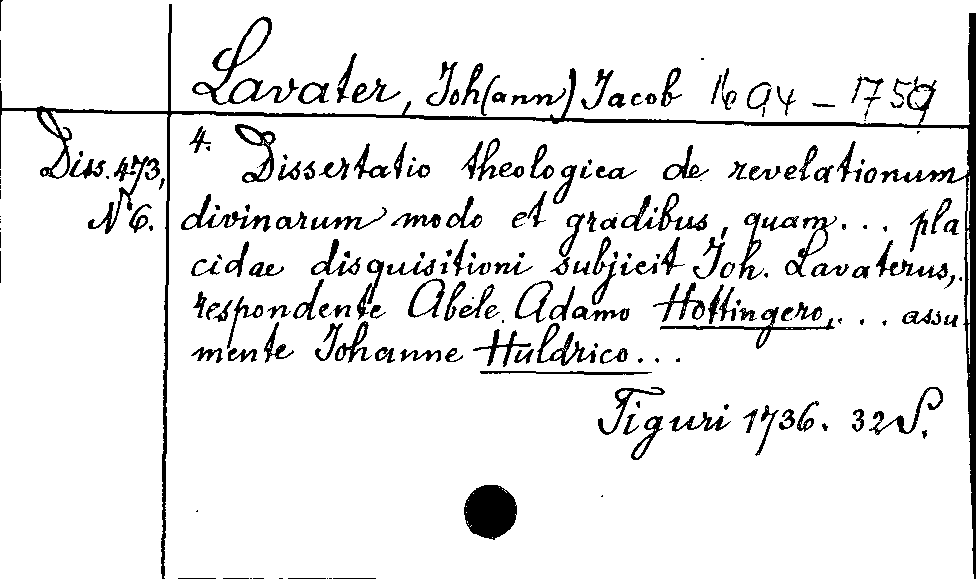 Lavater, Joh(ann) Jacob 1694 – 1759
Diss. 473,
No 6.
4. Dissertatio theologica de revelationum
divinarum modo et gradibus, quam... pla
cidae disquisitioni subjicit Joh. Lavaterus,.
respondente Abele Adamo Hottingero,... assu
mente Johanne Huldrico...
Tiguri 1736. 32 S.